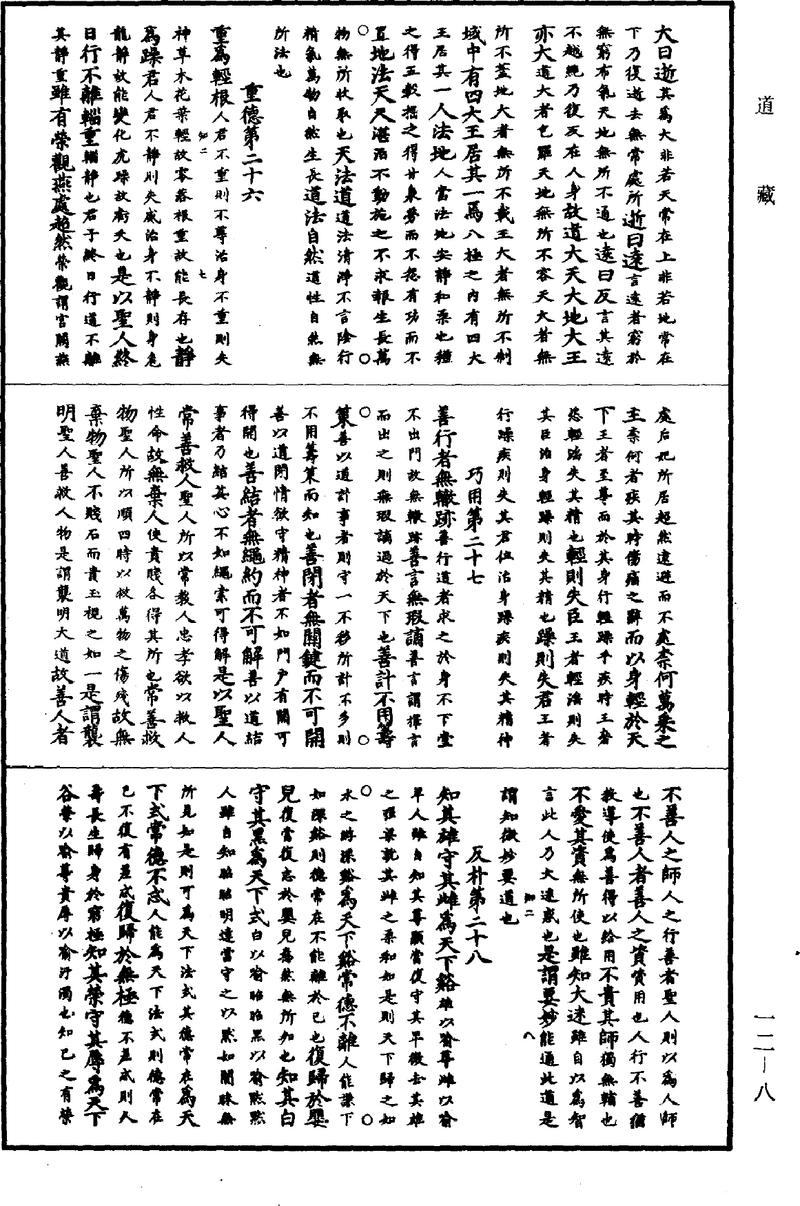 道藏
大曰逝其為大非若天常在上非若地常在
下乃復逝去無常處所逝曰遠言遠者窮於
無窮布氣天地無所不通也遠曰反言其遠
不越絕乃復反在人身故道大天大地大王
亦大道大者包羅天地無所不容天大者無
所不蓋地大者無所不載王大者無所不制
域中有四大王居其一焉八極之內有四大
王居其一人法地人當法地安靜和柔也種
之得五穀掘之得甘泉勞而不怨有功而不
置地法天天湛泊不動施之不求報生長萬
物無所收取也天法道道法清淨不言陰行
精氣萬物自然生長道法自然道性自然無
所法也
重德第二十六
重為輕根人君不重則不尊治身不重則失
知二 七
神草木花葉輕故零落根重故能長存也靜
為躁君人君不靜則失威治身不靜則身危
龍靜故能變化虎躁故虧夭也是以聖人終
日行不離輜重輜靜也君子終日行道不離
其靜重雖有榮觀燕處超然榮觀謂宮闕燕
處后妃所居超然遠避而不處柰何萬乘之
主柰何者疾其時傷痛之辭而以身輕於天
下王者至尊而於其身行輕躁乎疾時王奢
恣輕淫失其精也輕則失臣王者輕淫則失
其臣治身輕躁則失其精也躁則失君王者
行躁疾則失其君位治身躁疾則失其精神
巧用第二十七
善行者無轍跡善行道者求之於身不下堂
不出門故無轍跡善言無瑕讁善言謂擇言
而出之則無瑕讁過於天下也善計不用籌
策善以道計事者則守一不移所計不多則
不用籌策而知也善閉者無關鍵而不可開
善以道閉情欲守精神者不如門戶有關可
得開也善結者無繩約而不可解善以道結
事者乃結其心不如繩索可得解是以聖人
常善救人聖人所以常教人忠孝欲以救人
性命故無棄人使貴賤各得其所也常善救
物聖人所以順四時以救萬物之傷殘故無
棄物聖人不賤石而貴玉視之如一是謂襲
明聖人善救人物是謂襲明大道故善人者
不善人之師人之行善者聖人則以為人師
也不善人者善人之資資用也人行不善猶
教導使為善得以給用不貴其師獨無輔也
不愛其資無所使也雖知大迷雖自以為智
言此人乃大迷惑也是謂要妙能通此道是
知二 八
謂知微妙要道也
反朴第二十八
知其雄守其雌為天下谿雄以喻尊雌以喻
卑人雖自知其尊顯當復守其卑微去其雄
之強梁就其雌之柔和如是則天下歸之如
水之流深谿為天下谿常德不離人能謙下
如深谿則德常在不能離於己也復歸於嬰
兒復當復志於嬰兒惷然無所知也知其白
守其黑為天下式白以喻昭昭黑以喻默默
人雖自知昭昭明達當守之以默如闇昧無
所見如是則可為天下法式其德常在為天
下式常德不忒人能為天下法式則德常在
己不復有差忒復歸於無極德不差忒則久
壽長生歸身於窮極知其榮守其辱為天下
谷榮以喻尊貴辱以喻汙濁也知己之有榮
一二—八